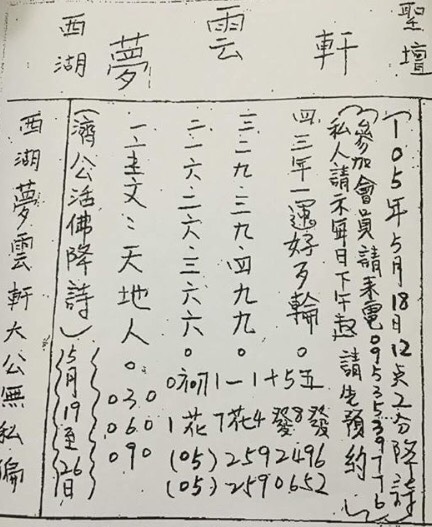 西湖 夢雲軒 聖壇
(105年5月18日12点2分降詩)
(參加會員請来電0953539776
私人請示每日下午起請先預約)
四三年一運好歹輪。
三二九.三九.四九九。
二一六.二六.三六六。
一二主文:天地人。
030
060
090
0初1一1+5五
1花7花4發8發
(05)2592496
(05)2590652
(濟公活佛降詩)(5月19至26日)
西湖夢雲軒大公無私編